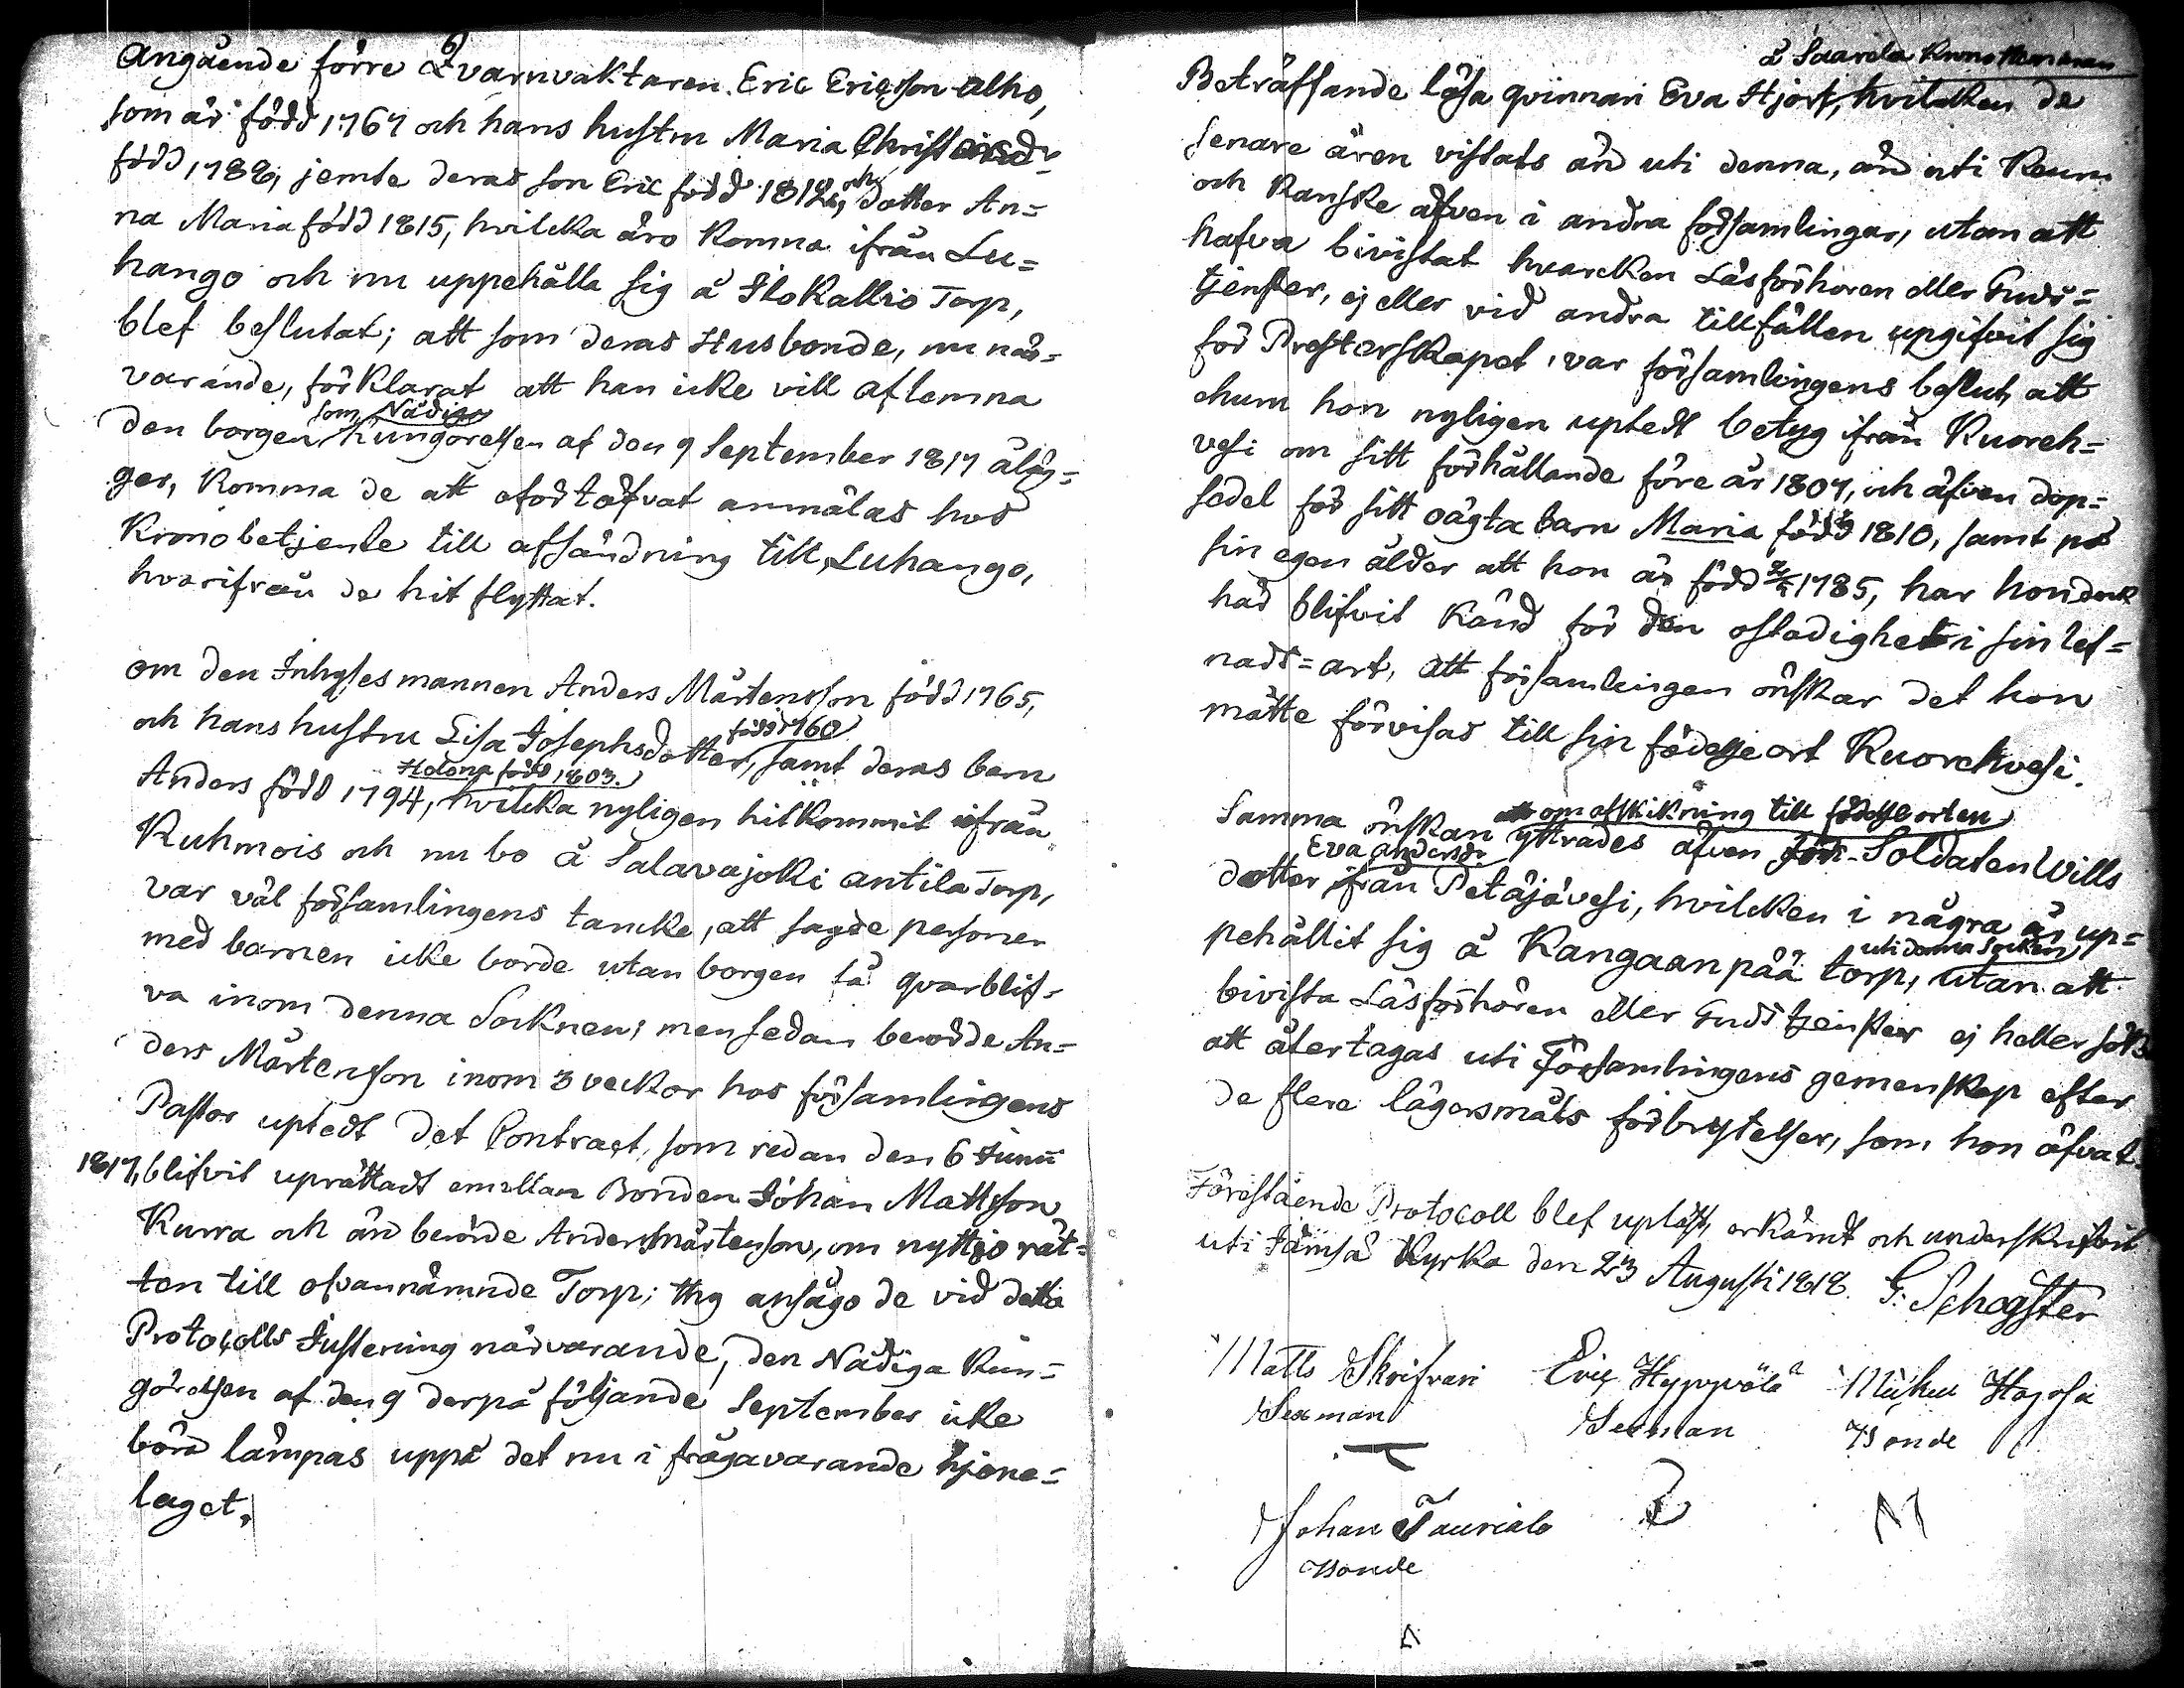 6)
Angående förre Qvarnvaktaren Eric Ericsson Alho,
som är född 1767 och hans hustru Maria Christersdr
född 1788, jemte deras son Eric född 1812, och dotter An=
na Maria född 1815, hvilcka äro komna ifrån Lu=
hango och nu uppehålla sig å Ilokallio Torp,
blef beslutat; att som deras Husbonde, nu när=
varande, förklarat att han icke vill aflemna
som Nådiga
den borgen Kungörelsen af den 9 September 1817 åläg=
ger, komma de att ofortöfvat anmälas hos
Kronobetjente till afsändning till Luhango,
hvarifrån de hit flyttat.
om den Inhyses mannen Anders Mårtensson född 1765,
född 1760
och hans hustru Lisa Josephsdotter, samt deras barn
Helena född 1803.
Anders född 1794, hvilcka nyligen hitkommit ifrån
Kuhmois och nu bo å Salavajoki Antila Torp,
var väl församlingens tancke, att sagde personer
med barnen icke borde utan borgen få qvarblif=
va inom denna Socknen; men sedan berörde An=
ders Mårtensson inom 3 veckor hos församlingens
Pastor uptedt det Contract, som redan den 6 Junii
1817, blifvit uprättadt emellan Bonden Johan Mattsson
Kurra och än berörde Anders Mårtensson, om nyttjo rät=
ten till ofvannämnde Torp; thy ansågo de vid detta
Protocolls Justering närvarande, den Nådiga Kun=
görelsen af den 9 derpå följande September icke
böra lämpas uppå det nu i frågavarande hjone=
laget.
å Saarela Kronohemman
Beträffande lösa qvinnan Eva Hjort, hvilcken de
senare åren vistats än uti denna, än uti Keuru
och kanske äfven i andra församlingar, utan att
hafva bivistat hvarcken Läsförhören eller Guds=
tjenster, ej eller vid andra tillfällen upgifvit sig
för Presterskapet, var församlingens beslut, att
ehuru hon nyligen uptedt betyg ifrån Kuoreh=
vesi om sitt förhållande före år 1807, och äfven dop=
sedel för sitt oägta barn Maria född 1810, samt på
sin egen ålder att hon är född 1785, har hon dock
här blifvit känd för den ostadighet i sin lef=
nads=art, att församlingen önskar det hon
måtte förvisas till sin födelseort Kuorehvesi.
om afskickning till födelseorten
Samma önskan yttrades äfven för Soldaten Wills
Eva Andersdr
dotter ifrån Petäjävesi, hvilcken i några år up=
uti denna Socken,
pehållit sig å Kangaanpää torp, utan att
bivista Läsförhören eller Gudstjenster ej heller sökt
att återtagas uti Församlingens gemenskap efter
de flere lägersmåls förbrytelser, som hon öfvat.
Förestående Protocoll blef upläst, erkändt och underskrifvit
uti Jämsä Kyrka den 23 Augusti 1818. G. Schogster
Matts Skrifvari Eric Hyppölä Michel Hagosa
Sexman Sexman Bonde
Johan Tauriala
Bonde